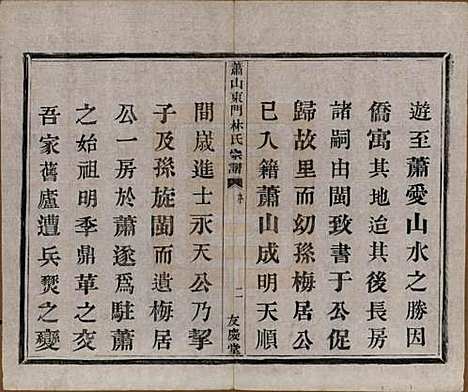 遊至蕭愛山水之勝因
僑寓其地迨其後長房
諸嗣由閩致書于公促
歸故里而幼孫梅居公
已入籍蕭山成明天順
蕭山東門林氏宗譜
二
友慶堂
間歲進士永天公乃挈
子及孫旋閩而遺梅居
公一房於蕭遂爲駐蕭
之始祖明季鼎革之交
吾家舊廬遭兵燹之變